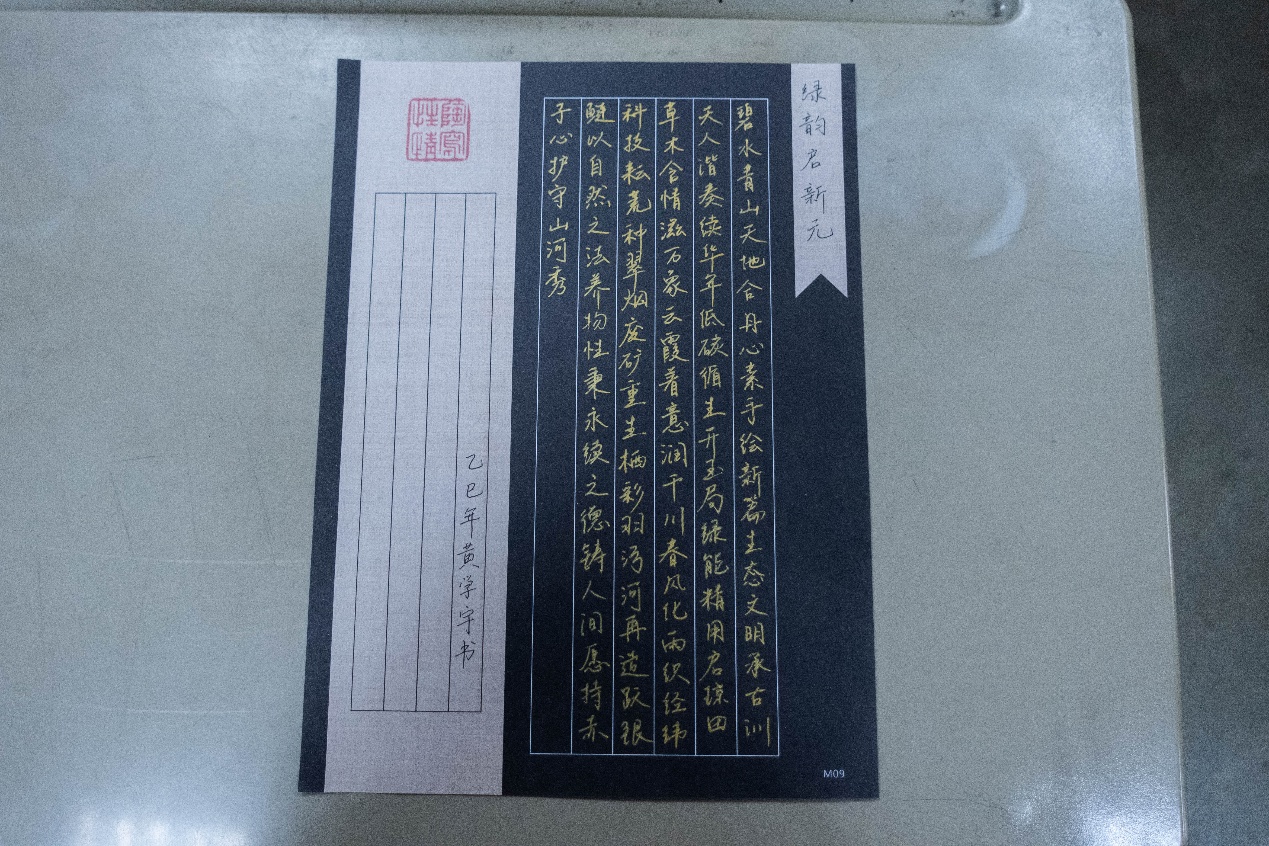 绿韵启新元
碧水青山天地合丹心素手绘新篇生态文明承古训
天人谐奏续华年低碳循生开玉局绿能精用启琼田
草木含情滋万象云霞着意润千川春风化雨织经纬
科技耘荒种翠烟废矿重生栖彩羽污河再造跃银
鲢以自然之法养物性秉永续之德铸人间愿持赤
子心护守山河秀
乙巳年黄学宇书
陶写性情
M09